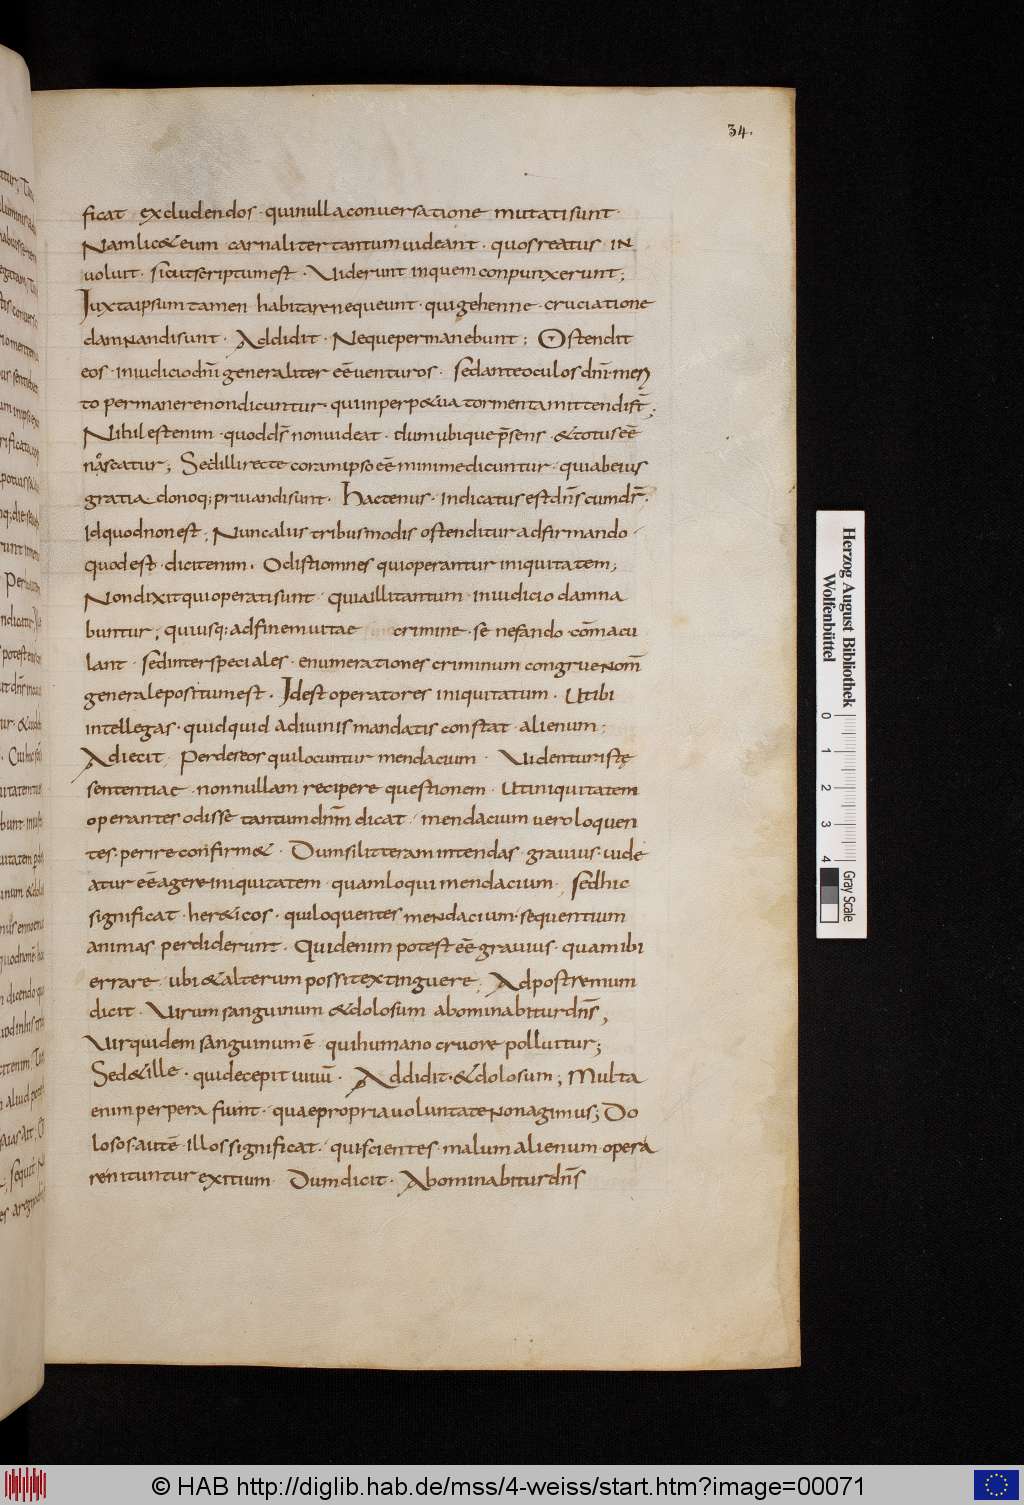 34.
ficat · excludendos · qui nulla conuersatione mutati sunt ·
Nam lic& eum carnaliter tantum uideant · quos reatus · IN
uoluit · sicut scriptum est · Uiderunt in quem conpunxerunt;
Iuxta ipsum tamen habitare nequeunt · qui gehenne · cruciatione
damNandi sunt · Addidit · Neque permanebunt; Ostendit
eos · in iudicio dñi generaliter eē uenturos · sed ante oculos dñi
to permanere non dicuntur qui in perp&ua tormenta
Nihil est enim · quod d̄s non uideat · dum ubique p̄sens · & totus eē
nascatur; Sed illi recte coram ipso eē minime dicuntur · qui ab eius
gratiae donoq; priuandi sunt · hactenus · indicatus est dn̄s cum dr̄ ·
Id quod non est; Nunc alus tribus modis ostenditur adfirmando ·
quod est · dicit enim · Odisti omnes qui operantur iniquitatem;
Non dixit qui operati sunt · quia illi tantum · in iudicio damna
buntur; qui usq; ad finem uitae crimine · se nefando · cōmacu
lant · sed inter speciales · enumerationes criminum congrue Nom̄
generale positum est · Id est operatores iniquitatum · Ut ibi
intellegas · quidquid a diuinis mandatis constat · alienum;
Adiecit · Perdes eos qui locuntur mendacium · Uidentur istę
sententiae · non nullam recipere questionem · Ut iniquitatem
operantes odisse tantum dnm̄ dicat · mendacium uero loquen
tes · perire confirm& · Dum si litteram intendas · grauius · uide
atur eē agere iniquitatem · quam loqui mendacium · sed hic
significat · her&icos · qui loquentes meNdacium · sequentium
animas perdiderunt · Quid enim potest eē grauius · quam ibi
errare · ubi & alterum possit extinguere; Ad postremum
dicit · Uirum sanguinum & dolosum abominabitur dn̄s;
Uir quidem sanguinum ē · qui humano cruore polluitur;
Sed & ille · qui decepit uiuū · Addidit · & dolosum; Multa
enim perpera fiunt · quae propria uoluntate Non agimus; Do
losos autē · illos significat · qui scientes · malum alienum · opera
ri nituntur exitium · Dum dicit · Abominabitur dn̄s
Herzog August Bibliothek
Wolfenbüttel
0 1 2 3 4
Gray Scale
© HAB http://diglib.hab.de/mss/4-weiss/start.htm?image=00071